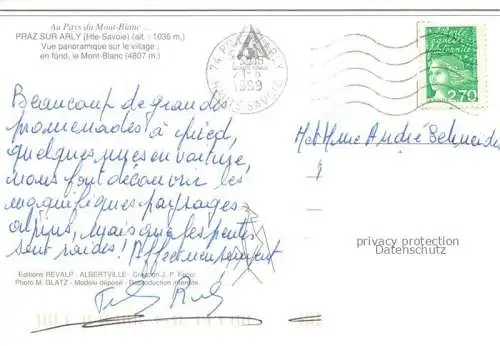 Au Pays du Mont-Blanc...
PRAZ SUR ARLY (Hte-Savoie) (alt. : 1036 m.)
Vue panoramique sur le village ;
en fond, le Mont-Blanc (4807 m.)
1999
HAUTE SAVOIE
2,70
Beaucoup de grandes
promenades à pied,
quelques unes en voiture,
nous font découvrir les
magnifiques paysages
alpins, mais que les pentes
sont raides! Affectueusement
M et Mme André Schneider
privacy protection
Datenschutz
Editions REVALP - ALBERTVILLE - Création J. P.
Photo M. BLATZ - Modèle déposé - Reproduction interdite.